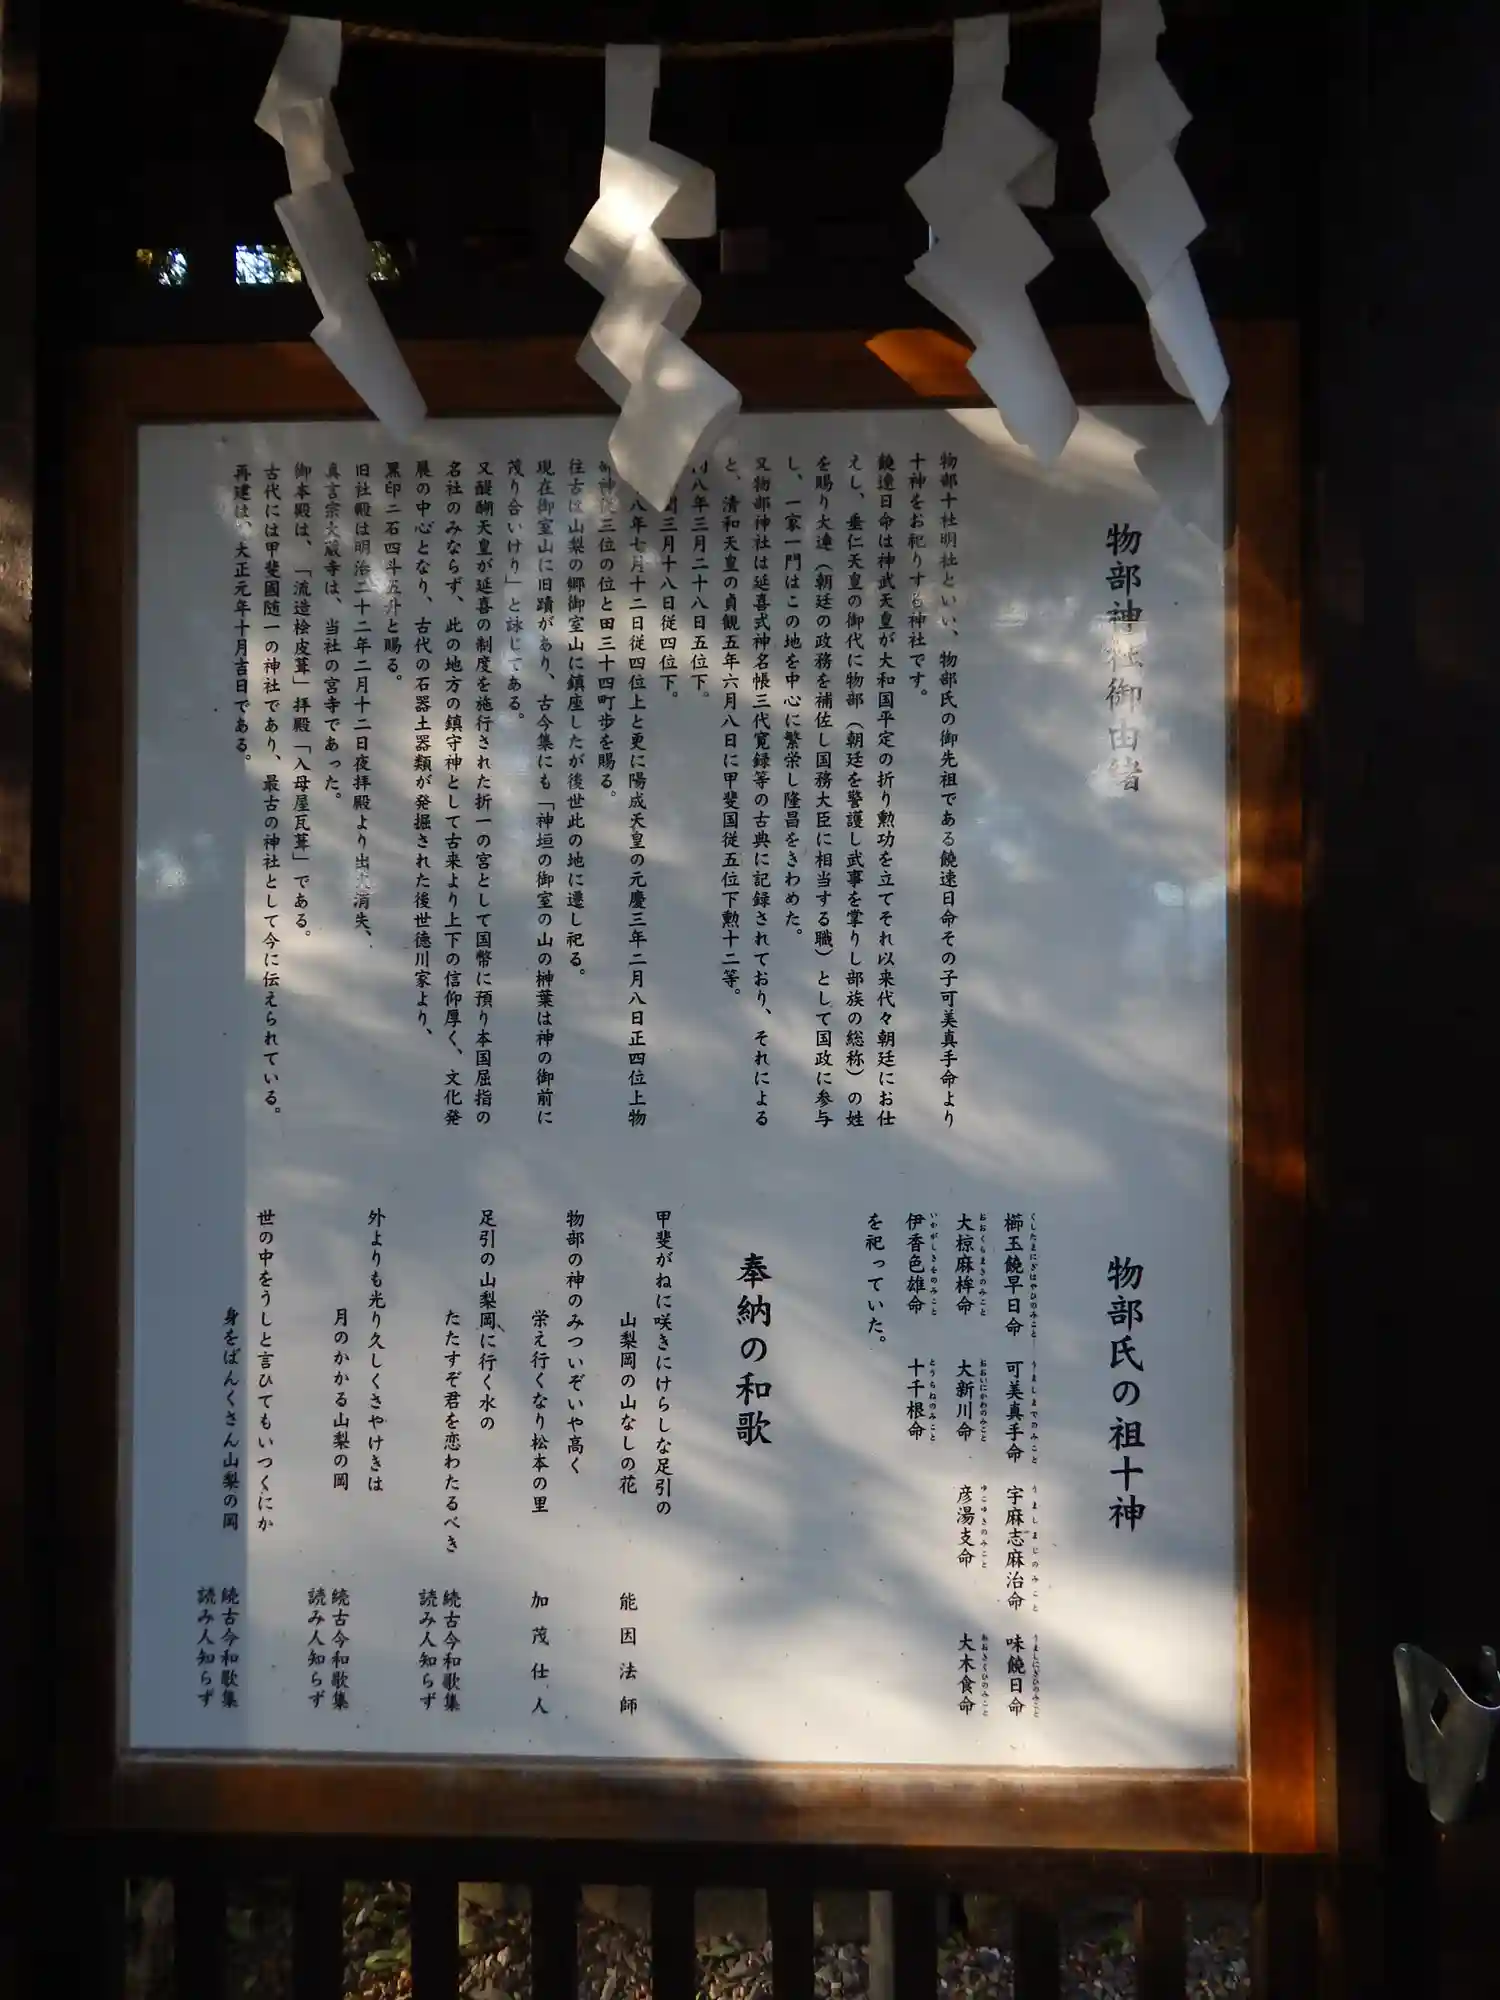 物部神社御由緒
物部十社明社といい、物部氏の御先祖である饒速日命その子可美真手命より
十神をお祀りする神社です。
饒速日命は神武天皇が大和国平定の折り勲功を立てそれ以来代々朝廷にお仕
えし、垂仁天皇の御代に物部（朝廷を警護し武事を掌りし部族の総称）の姓
を賜り大連（朝廷の政務を補佐し国務大臣に相当する職）として国政に参与
し、一家一門はこの地を中心に繁栄し隆昌をきわめた。
又物部神社は延喜式神名帳三代寛録等の古典に記録されており、それによる
と、清和天皇の貞観五年六月八日に甲斐国従五位下勲十二等。
八年三月二十八日五位下。
三月十八日従四位下。
八年七月十二日従四位上と更に陽成天皇の元慶三年二月八日正四位上物
部神従三位の位と田三十四町歩を賜る。
往古は山梨の郷御室山に鎮座したが後世此の地に遷し祀る。
現在御室山に旧蹟があり、古今集にも「神垣の御室の山の榊葉は神の御前に
茂り合いけり」と詠じてある。
又醍醐天皇が延喜の制度を施行された折一の宮として国幣に預り本国屈指の
名社のみならず、此の地方の鎮守神として古来より上下の信仰厚く、文化発
展の中心となり、古代の石器土器類が発掘された後世徳川家より、
黒印二石四斗五升と賜る。
旧社殿は明治二十二年二月十二日夜拝殿より出火消失、
真言宗大蔵寺は、当社の宮寺であった。
御本殿は、「流造桧皮葺」拝殿「入母屋瓦葺」である。
古代には甲斐國随一の神社であり、最古の神社として今に伝えられている。
再建は、大正元年十月吉日である。
物部氏の祖十神
くしたまにぎはやひのみこと うましまでのみこと うましまじのみこと うましにぎひのみこと
櫛玉饒早日命 可美真手命 宇麻志麻治命 味饒日命
おおくらまきのみこと おおいにかわのみこと ゆこゆきのみこと おおきくひのみこと
大椋麻桙命 大新川命 彦湯支命 大木食命
いかがしきをのみこと とうちねのみこと
伊香色雄命 十千根命
を祀っていた。
奉納の和歌
甲斐がねに咲きにけらしな足引の
山梨岡の山なしの花 能因法師
物部の神のみついぞいや高く
栄え行くなり松本の里 加茂仕人
足引の山梨岡に行く水の
たたすぞ君を恋わたるべき 続古今和歌集
読み人知らず
外よりも光り久しくさやけきは
月のかかる山梨の岡 続古今和歌集
読み人知らず
世の中をうしと言ひてもいつくにか
身をばんくさん山梨の岡 続古今和歌集
読み人知らず